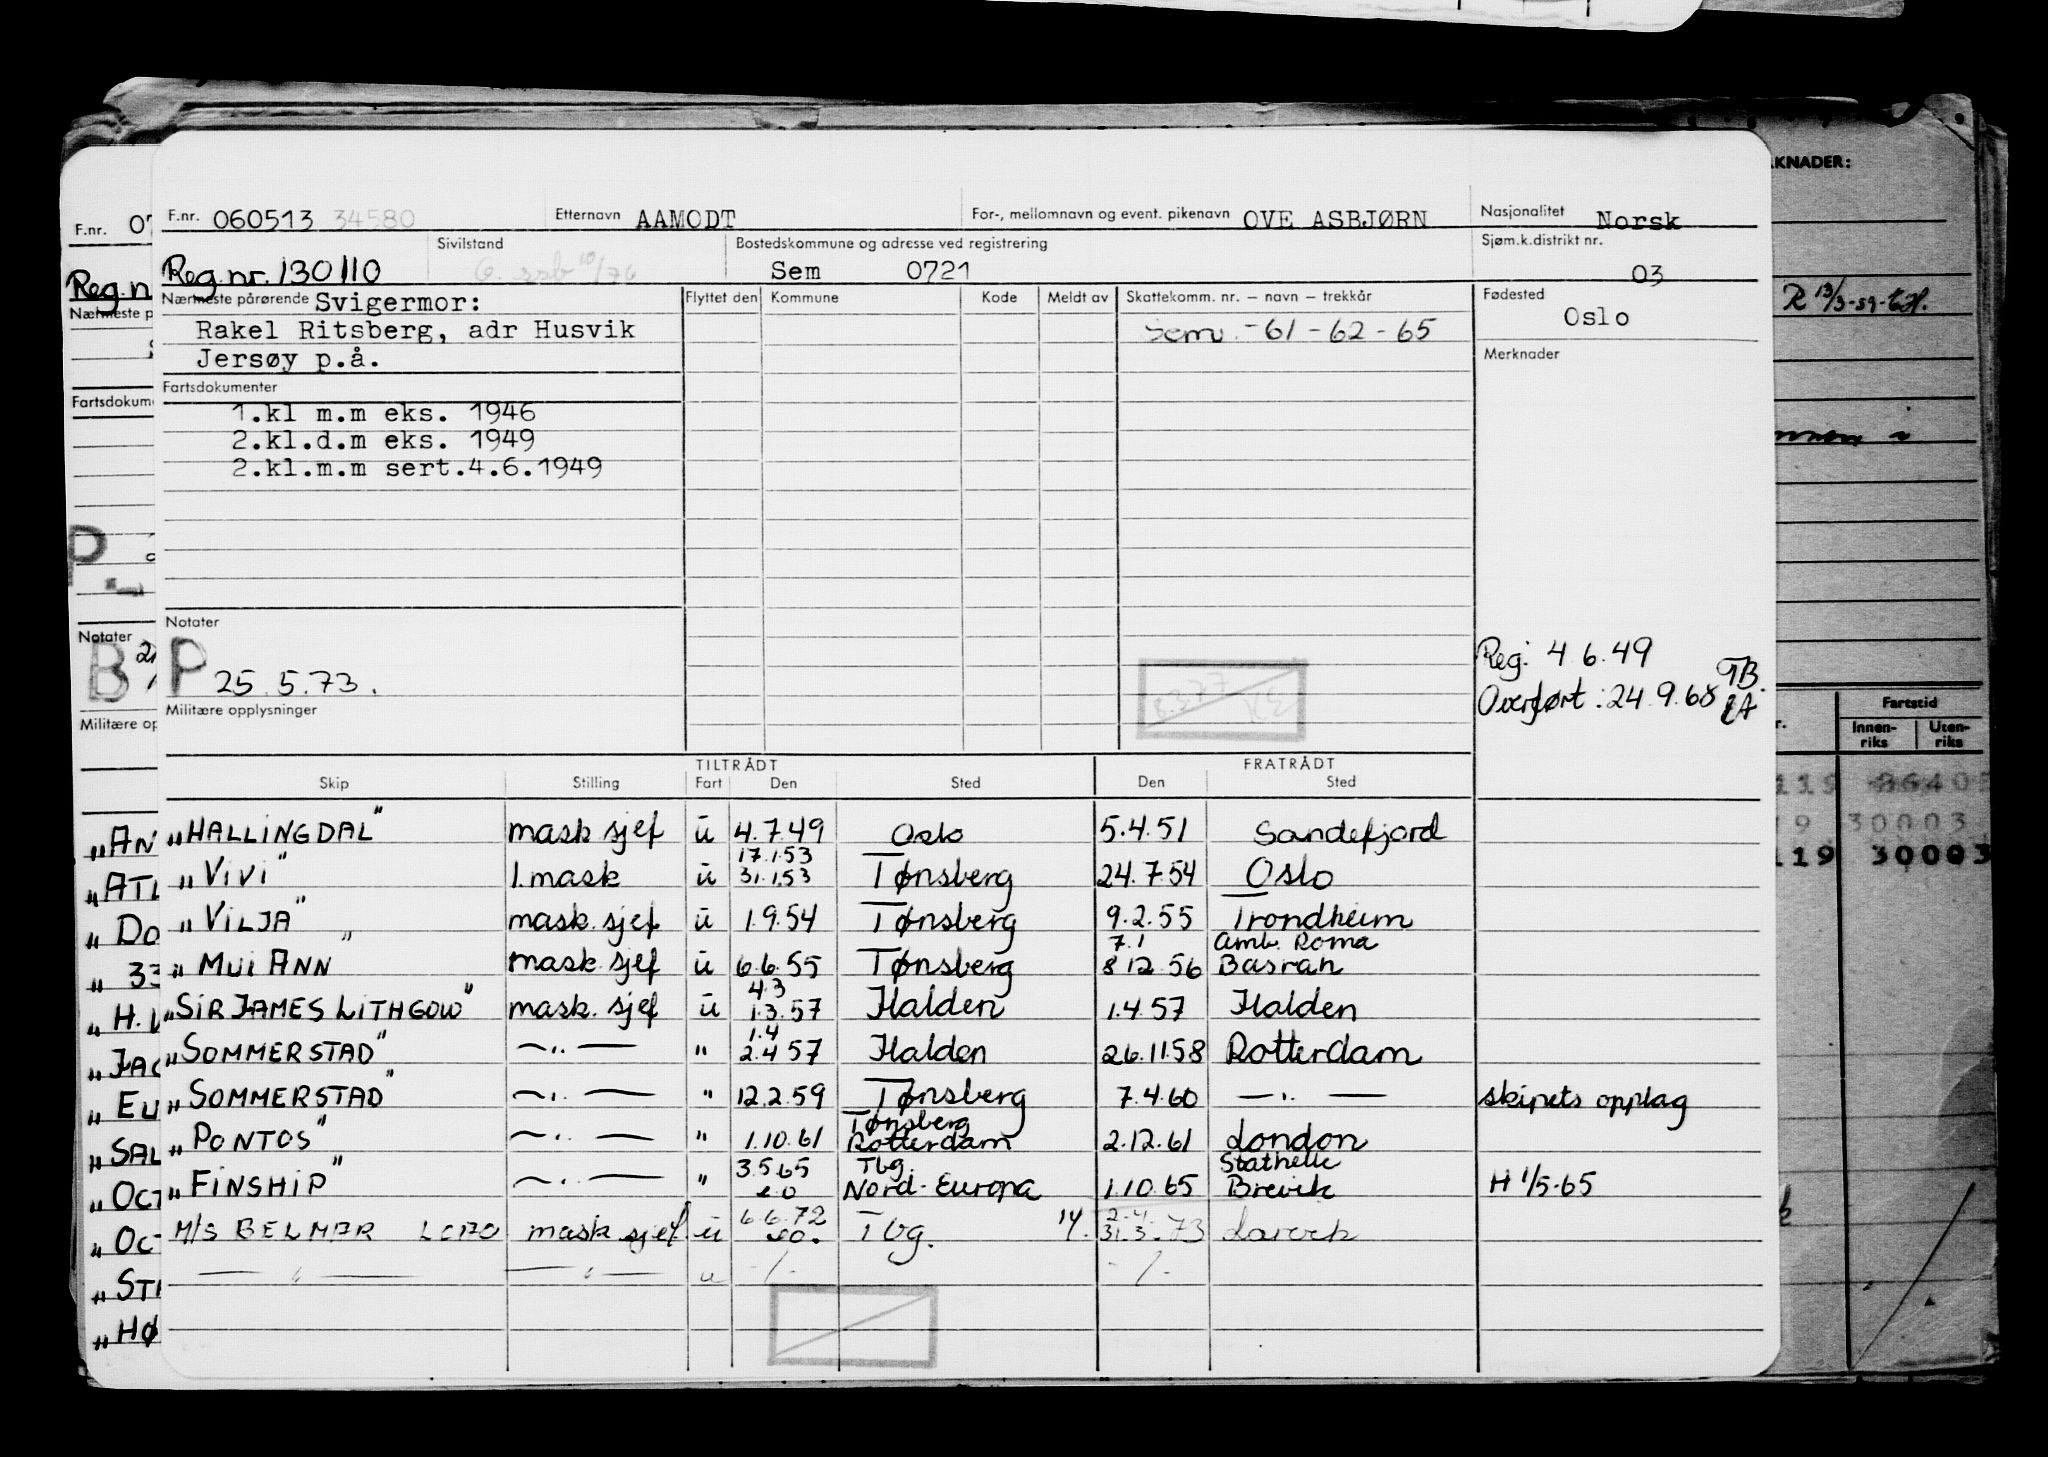 KNADER:
F.nr. 060513 34580 Etternavn AAMODT For-, mellomnavn og event. pikenavn OVE ASBJØRN Nasjonalitet Norsk
F.nr. 07
Reg.nr. 130110 Sivilstand Bostedskommune og adresse ved registrering Sem 0721 Sjøm.k.distrikt nr. 03
Reg.n
Nærmeste pårørende Svigermor: Flyttet den Kommune Kode Meldt av Skattekomm. nr. – navn – trekkår Fødested
Nærmeste p
Rakel Ritsberg, adr Husvik Sem. -61-62-65 Oslo
Jersøy p.å. Merknader
Fartsdokumenter
Fartsdokum
1.kl m.m eks. 1946
2.kl.d.m eks. 1949
2.kl.m.m sert.4.6.1949
P
Notater
Notater
B P 25.5.73.
Reg: 4.6.49 TB.
Overført: 24.9.68
Militære opplysninger
Militære op
Fartstid
Innen-riks Uten-riks
TILTRÅDT FRATRÅDT
Skip Stilling Fart Den Sted Den Sted
119 86405
30003
119 30003
„HALLINGDAL" mask sjef u 4.7.49 Oslo 5.4.51 Sandefjord
17.1.53
„VIVI" 1.mask u 31.1.53 Tønsberg 24.7.54 Oslo
„VILJA" mask. sjef u 1.9.54 Tønsberg 9.2.55 Trondheim
7.1 Amb. Roma
„MUI ANN" mask. sjef u 6.6.55 Tønsberg 8.12.56 Basrah
4.3
„SIR JAMES LITHGOW" mask. sjef u 1.3.57 Halden 1.4.57 Halden
1.4
„SOMMERSTAD" —„— " 2.4.57 Halden 26.11.58 Rotterdam
„SOMMERSTAD" —„— " 12.2.59 Tønsberg 7.4.60 —„— skipets opplag
Tønsberg
„PONTOS" —„— " 1.10.61 Rotterdam 2.12.61 London
3.5.65 Tbg. Stathelle
„FINSHIP" —„— " Nord-Europa 1.10.65 Brevik H 1/5-65
6.6.72 14. 2.4.
M/S BELMAR mask sjef. u Tbg. 31.3.73 Larvik
—„— —„— u -/- -/-
„AN
„ATL
„DO
„33
„H.
„JAC
„EU
„SAL
„OCT
„OCT
„STI
„HØ